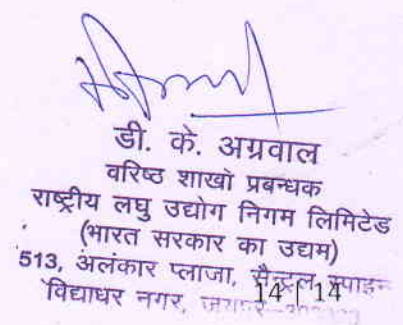 डी. के. अग्रवाल
वरिष्ठ शाखा प्रबन्धक
राष्ट्रीय लघु उद्योग निगम लिमिटेड
(भारत सरकार का उद्यम)
513, अलंकार प्लाजा, सैन्ट्रल स्पाइन
विद्याधर नगर, जयपुर
14 | 14